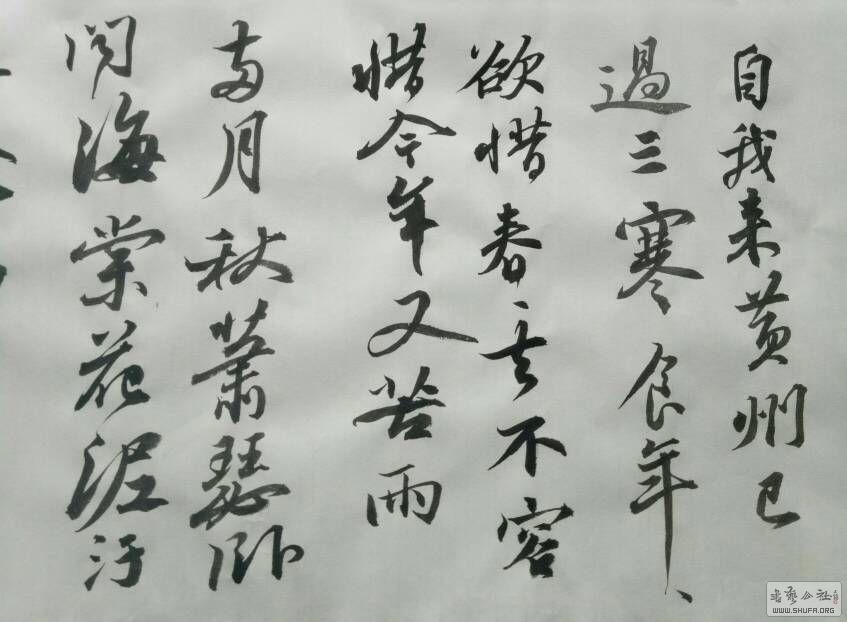 自我来黄州已
過三寒食年、
欲惜春去不容
惜今年又苦雨
两月秋萧瑟卧
闻海棠花泥汙
书艺公社
WWW.SHUFA.ORG